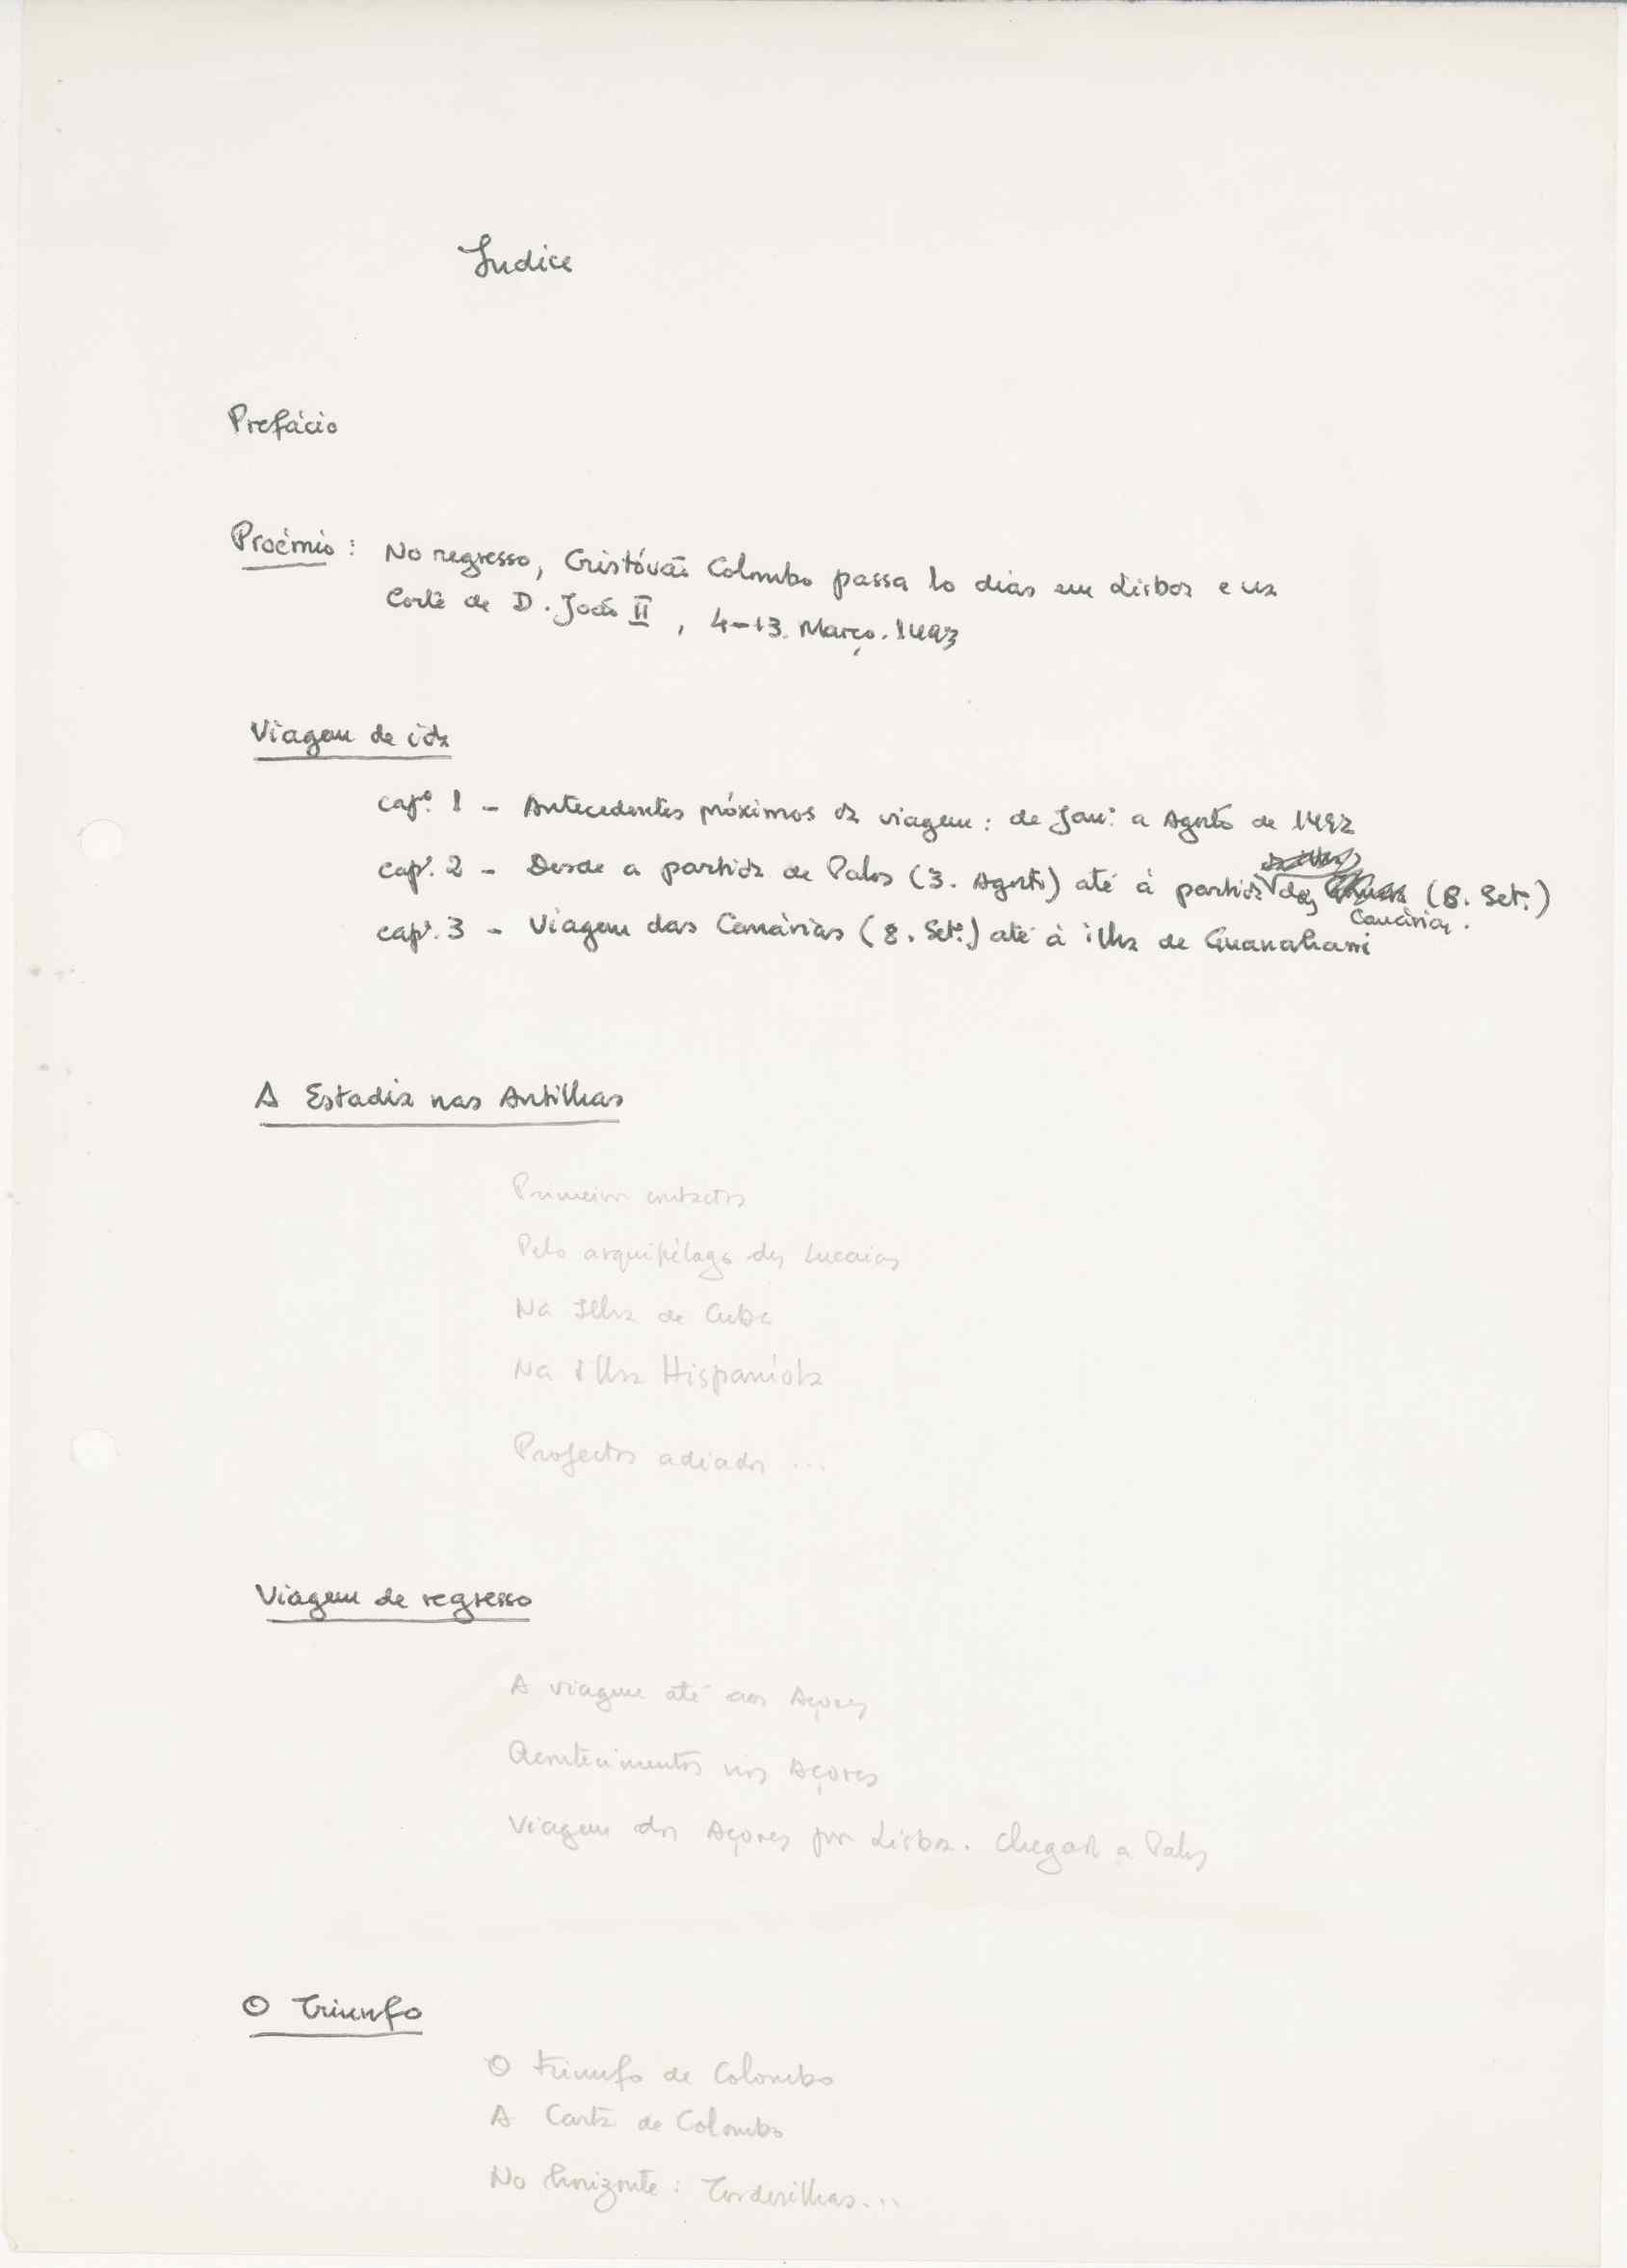 Indice
Prefácio
Proémio : No regresso, Cristóvão Colombo passa 10 dias em Lisboa e na
Corte de D. João II, 4-13. Março. 1493
Viagem de ida
capº. 1 - Antecedentes próximos da viagem : de Janº. a Agosto de 1492
capº. 2 - Desde a partida de Palos (3. Agosto) até à partida das Canárias. (8. Setº.)
capº. 3 - Viagem das Canárias (8. Setº.) até à ilha de Guanahani
A Estadia nas Antilhas
Primeiros contactos
Pelo arquipélago das Lucaias
Na Ilha de Cuba
Na Ilha Hispaniola
Projectos adiados ...
Viagem de regresso
A viagem até aos Açores
Acontecimentos nos Açores
Viagem dos Açores por Lisboa. Chegada a Palos
O Triunfo
O triunfo de Colombo
A Carta de Colombo
No horizonte : Tordesilhas...